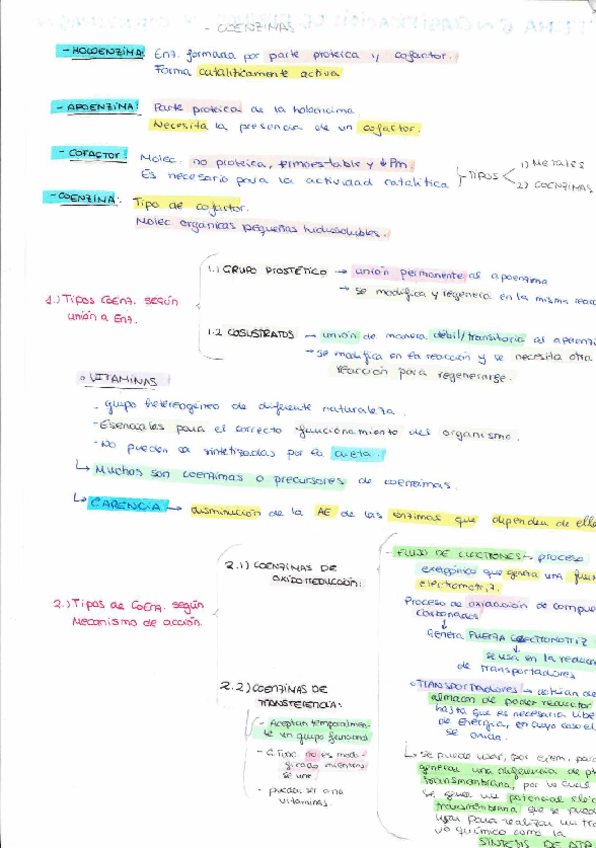 - COENZIMAS
- HOLOENZIMA: Enz. formada por parte proteica y cofactor.
Forma cataliticamente activa
- APOENZIMA: Parte proteica de la holoenzima.
Necesita la presencia de un cofactor.
- COFACTOR: Molec. no proteica, termoestable y ↓Pm
Es necesario para la actividad catalitica
TIPOS
1) METALES
2) COENZIMAS
- COENZIMA: Tipo de cofactor.
Molec organicas pequeñas hidrosolubles.
1.) Tipos COENZ. según
unión a Enz.
1.1) GRUPO PROSTÉTICO → unión permanente al apoenzima
→ se modifica y regenera en la misma reacc
1.2 COSUSTRATOS → unión de manera débil/transitoria al apoenzi
→ se modifica en la reacción y se necesita otra
reacción para regenerarse.
◦ VITAMINAS
- grupo heterogéneo de diferente naturaleza.
- Esenciales para el correcto funcionamiento del organismo.
- No pueden ser sintetizadas por la
↳ Muchas son coenzimas o precursores de coenzimas.
↳ CARENCIA → disminución de la AE de las enzimas que dependen de ella
2.) Tipos de COENZ. según
Mecanismo de acción.
2.1) COENZIMAS DE
OXIDORREDUCCIÓN:
- FLUJO DE ELECTRONES → proceso
exergónico que genera una fuer
electromotriz.
Proceso de oxidación de compue
carbonados
↓
Genera FUERZA ELECTROMOTRIZ
↓
se usa en la reducc
de transportadores
◦ TRANSPORTADORES → actúan de
almacen de poder reductor
hasta que es necesaria libe
de Energía, en cuyo caso
se oxidan.
↳ se puede usar, por ejem. para
generar una diferencia de
transmembrana, por lo cual
se genera un potencial eléc
transmembrana que se pued
usar para realizar un tra
químico como la
SÍNTESIS DE ATP
2.2) COENZIMAS DE
TRANSFERENCIA:
- Aceptan temporalmen-
te un grupo funcional
- no es modi-
ficado mientras
se une
- pueden ser o no
vitaminas.